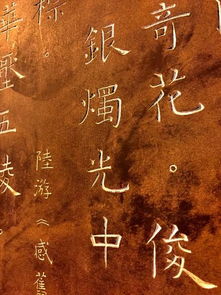 奇花。俊
銀燭光中
陸游《感舊
粽。
華壓五陵。